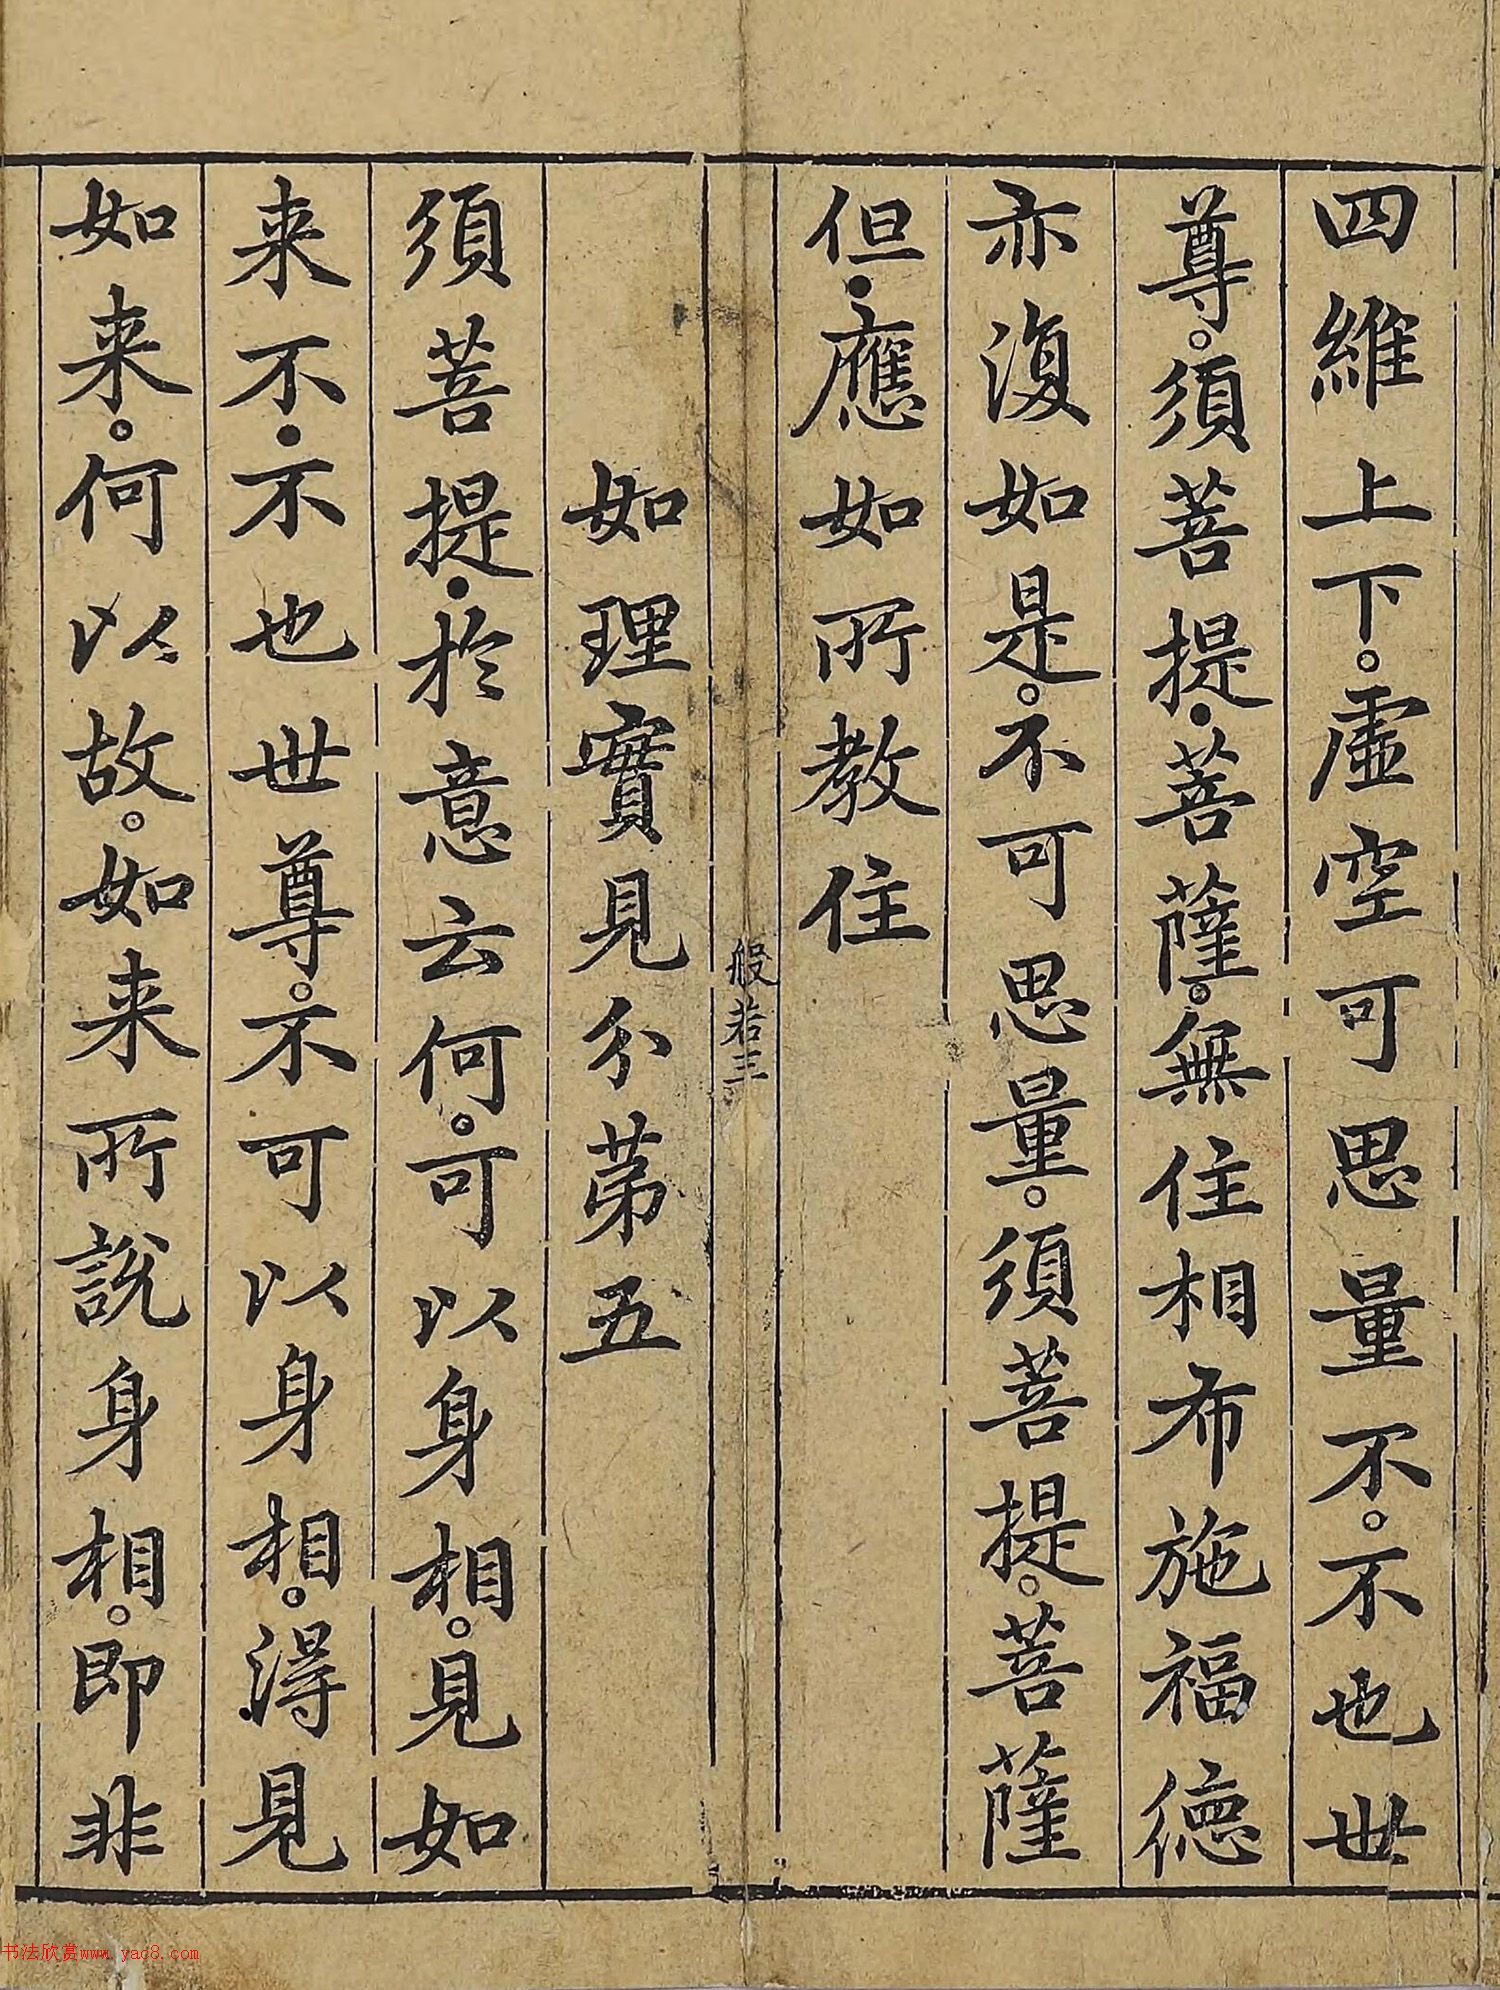 四維上下。虛空可思量不。不也世
尊。須菩提·菩薩。無住相布施福德
亦復如是。不可思量。須菩提。菩薩
但·應如所教住
般若三
如理實見分第五
須菩提·於意云何。可以身相。見如
来不·不也世尊。不可以身相。得見
如来。何以故。如来所說身相。即非
书法欣赏www.yac8.com